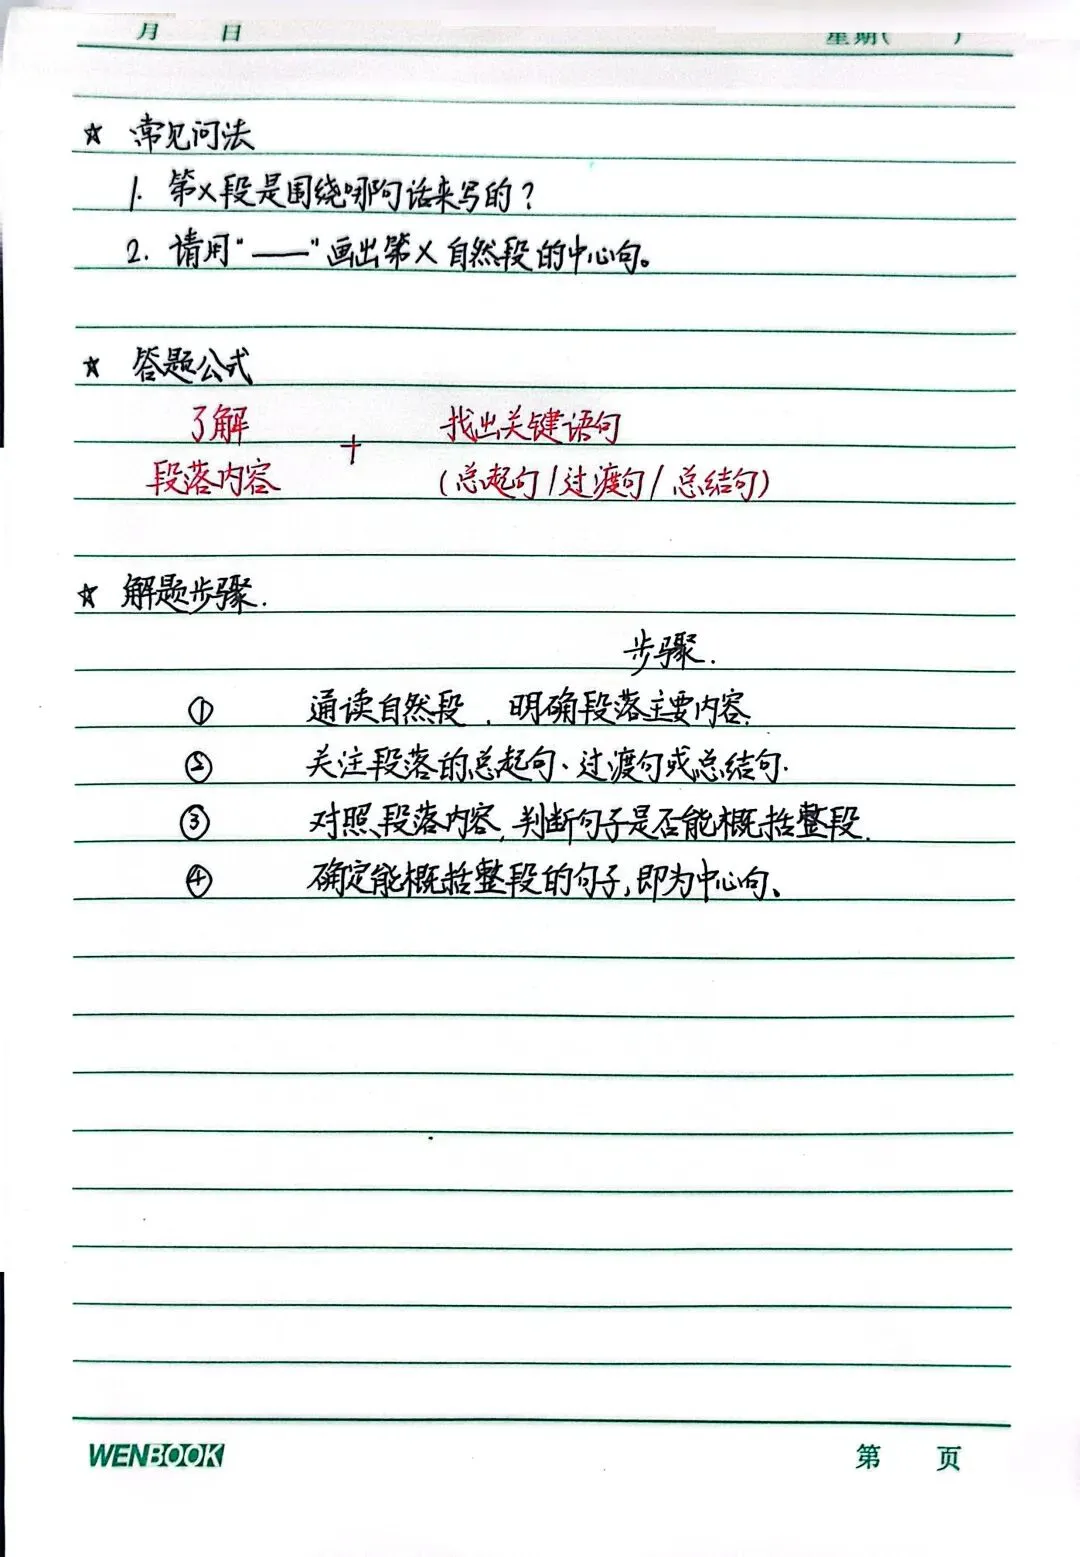 月 日 星期( )
☆ 常见问法
1. 第X段是围绕哪句话来写的?
2. 请用"——"画出第X自然段的中心句。
☆ 答题公式
了解 + 找出关键语句
段落内容 (总起句/过渡句/总结句)
☆ 解题步骤.
步骤.
① 通读自然段,明确段落主要内容.
② 关注段落的总起句、过渡句或总结句.
③ 对照段落内容,判断句子是否能概括整段.
④ 确定能概括整段的句子,即为中心句、
WENBOOK 第 页